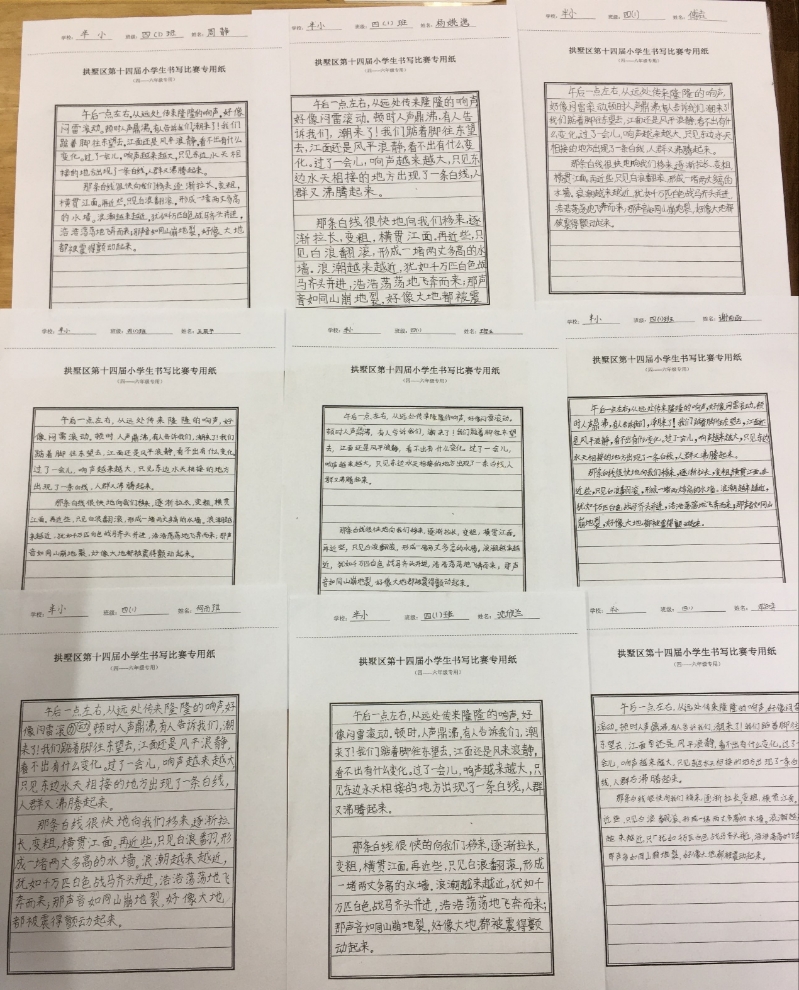 学校：半小 班级：四(1)班 姓名：周静
拱墅区第十四届小学生书写比赛专用纸
（四——六年级专用）
午后一点左右，从远处传来隆隆的响声，好像
闷雷滚动。顿时人声鼎沸，有人告诉我们，潮来了！我们
踮着脚往东望去，江面还是风平浪静，看不出有什么变
化。过了一会儿，响声越来越大，只见东边水天相
接的地方出现了一条白线，人群又沸腾起来。
那条白线很快地向我们移来，逐渐拉长，变粗，
横贯江面。再近些，只见白浪翻滚，形成一堵两丈多高
的水墙。浪潮越来越近，犹如千万匹白色战马齐头并进，
浩浩荡荡地飞奔而来；那声音如同山崩地裂，好像大地
都被震得颤动起来。
学校：半小 班级：四(1)班 姓名：
拱墅区第十四届小学生书写比赛专用纸
（四——六年级专用）
午后一点左右，从远处传来隆隆的响声
好像闷雷滚动。顿时人声鼎沸，有人告
诉我们，潮来了！我们踮着脚往东望
去，江面还是风平浪静，看不出有什么变
化。过了一会儿，响声越来越大，只见东
边水天相接的地方出现了一条白线，人
群又沸腾起来。
那条白线很快地向我们移来，逐
渐拉长，变粗，横贯江面。再近些，只
见白浪翻滚，形成一堵两丈多高的水
墙。浪潮越来越近，犹如千万匹白色战
马齐头并进，浩浩荡荡地飞奔而来；那声
音如同山崩地裂，好像大地都被震
学校：半小 班级：四(1) 姓名：
拱墅区第十四届小学生书写比赛专用纸
（四——六年级专用）
午后一点左右，从远处传来隆隆的响声，
好像闷雷滚动。顿时人声鼎沸，有人告诉我们，潮来
了！我们踮着脚往东望去，江面还是风平浪静，看不出有什
么变化。过了一会儿，响声越来越大，只见东边水天
相接的地方出现了一条白线，人群又沸腾起来。
那条白线很快地向我们移来，逐渐拉长，变粗，
横贯江面。再近些，只见白浪翻滚，形成一堵两丈多高的
水墙。浪潮越来越近，犹如千万匹白色战马齐头并进，
浩浩荡荡地飞奔而来；那声音如同山崩地裂，好像大地都
被震得颤动起来。
学校：半小 班级：四(1)班 姓名：
拱墅区第十四届小学生书写比赛专用纸
（四——六年级专用）
午后一点左右，从远处传来隆隆的响声，好
像闷雷滚动。顿时人声鼎沸，有人告诉我们，潮来了！我们
踮着脚往东望去，江面还是风平浪静，看不出有什么变化。
过了一会儿，响声越来越大，只见东边水天相接的地方
出现了一条白线，人群又沸腾起来。
那条白线很快地向我们移来，逐渐拉长，变粗，横贯
江面。再近些，只见白浪翻滚，形成一堵两丈多高的水墙。浪潮越
来越近，犹如千万匹白色战马齐头并进，浩浩荡荡地飞奔而来；那声
音如同山崩地裂，好像大地都被震得颤动起来。
学校：半小 班级：四(1) 姓名：
拱墅区第十四届小学生书写比赛专用纸
（四——六年级专用）
午后一点左右，从远处传来隆隆的响声，好像闷雷滚动。
顿时人声鼎沸，有人告诉我们，潮来了！我们踮着脚往东望
去，江面还是风平浪静，看不出有什么变化。过了一会儿，
响声越来越大，只见东边水天相接的地方出现了一条白线，人
群又沸腾起来。
那条白线很快地向我们移来，逐渐拉长，变粗，横贯江面。
再近些，只见白浪翻滚，形成一堵两丈多高的水墙。浪潮越来越
近，犹如千万匹白色战马齐头并进，浩浩荡荡地飞奔而来；那声
音如同山崩地裂，好像大地都被震得颤动起来。
学校：半小 班级：四(1)班 姓名：
拱墅区第十四届小学生书写比赛专用纸
（四——六年级专用）
午后一点左右，从远处传来隆隆的响声，好像闷雷滚动。顿
时人声鼎沸，有人告诉我们，潮来了！我们踮着脚往东望去，江面还
是风平浪静，看不出有什么变化。过了一会儿，响声越来越大，只见东边
水天相接的地方出现了一条白线，人群又沸腾起来。
那条白线很快地向我们移来，逐渐拉长，变粗，横贯江面。再
近些，只见白浪翻滚，形成一堵两丈多高的水墙。浪潮越来越近，
犹如千万匹白色战马齐头并进，浩浩荡荡地飞奔而来；那声音如同山
崩地裂，好像大地都被震得颤动起来。
学校：半小 班级：四(1) 姓名：
拱墅区第十四届小学生书写比赛专用纸
（四——六年级专用）
午后一点左右，从远处传来隆隆的响声，好
像闷雷滚动。顿时人声鼎沸，有人告诉我们，潮
来了！我们踮着脚往东望去，江面还是风平浪静，
看不出有什么变化。过了一会儿，响声越来越大，
只见东边水天相接的地方出现了一条白线，
人群又沸腾起来。
那条白线很快地向我们移来，逐渐拉
长，变粗，横贯江面。再近些，只见白浪翻滚，形
成一堵两丈多高的水墙。浪潮越来越近，
犹如千万匹白色战马齐头并进，浩浩荡荡地飞
奔而来；那声音如同山崩地裂，好像大地
都被震得颤动起来。
学校：半小 班级：四(1)班 姓名：沈欣兰
拱墅区第十四届小学生书写比赛专用纸
（四——六年级专用）
午后一点左右，从远处传来隆隆的响声，好
像闷雷滚动。顿时，人声鼎沸，有人告诉我们，潮
来了！我们踮着脚往东望去，江面还是风未浪静，
看不出有什么变化。过了一会儿，响声越来越大，只
见东边水天相接的地方出现了一条白线，人群
又沸腾起来。
那条白线很快的向我们移来，逐渐拉长，
变粗，横贯江面。再近些，只见白浪翻滚，形成
一堵两丈多高的水墙。浪潮越来越近，犹如千
万匹白色战马齐头并进，浩浩荡荡的飞奔而来；
那声音如同山崩地裂，好像大地都被震得颤
动起来。
学校： 班级：四(1) 姓名：
拱墅区第十四届小学生书写比赛专用纸
（四——六年级专用）
午后一点左右，从远处传来隆隆的响声，好像闷雷
滚动。顿时人声鼎沸，有人告诉我们，潮来了！我们踮着脚往
东望去，江面还是风平浪静，看不出有什么变化。过了一
会儿，响声越来越大，只见东边水天相接的地方出现了一条白
线，人群又沸腾起来。
那条白线很快地向我们移来，逐渐拉长，变粗，横贯江面。
再近些，只见白浪翻滚，形成一堵两丈多高的水墙。浪潮越
来越近，犹如千万匹白色战马齐头并进，浩浩荡荡的飞
那声音如同山崩地裂，好像大地都被震得颤动起来。